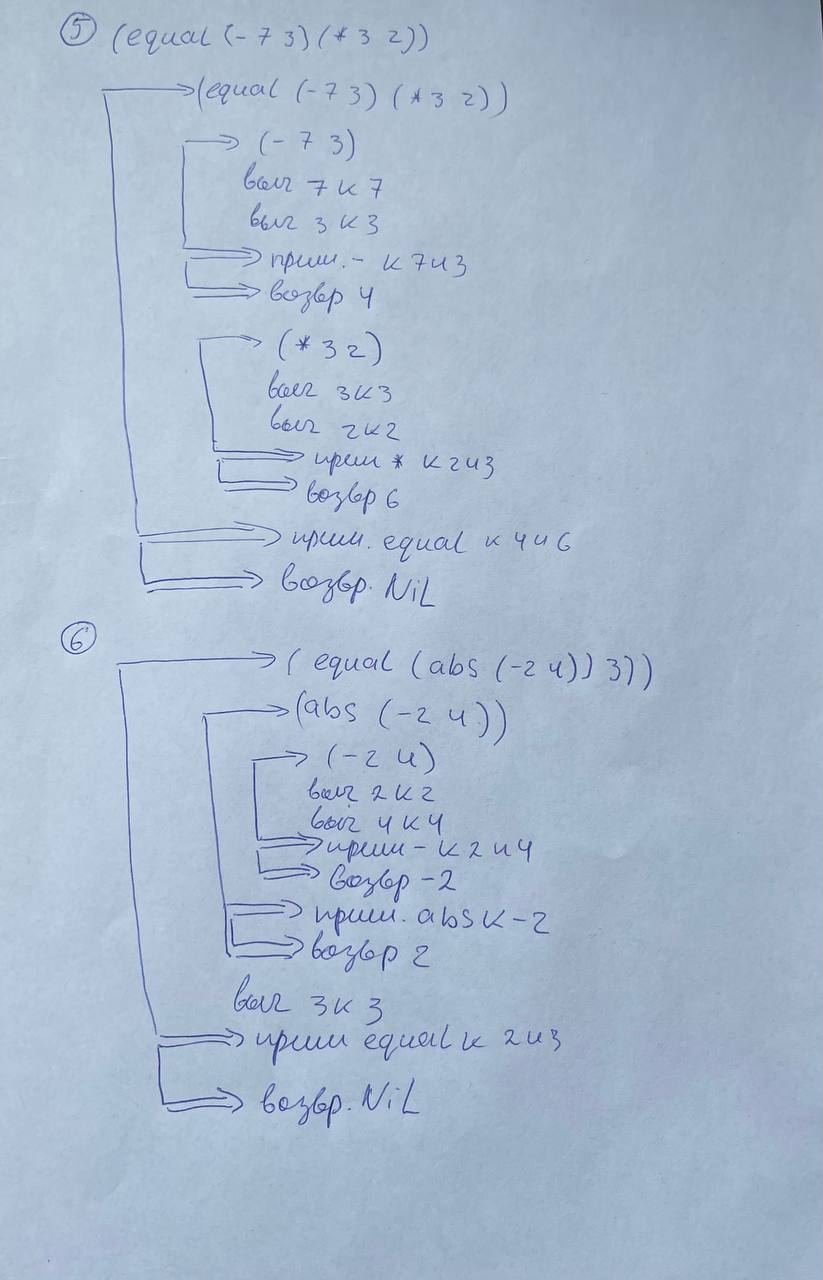 ⑤ (equal (- 7 3) (* 3 2))
(equal (- 7 3) (* 3 2))
(- 7 3)
выч 7 к 7
выч 3 к 3
прим. - к 7 и 3
возвр 4
(* 3 2)
выч 3 к 3
выч 2 к 2
прим * к 2 и 3
возвр 6
прим. equal к 4 и 6
возвр. NiL
⑥
(equal (abs (-2 4)) 3))
(abs (-2 4))
(-2 4)
выч 2 к 2
выч 4 к 4
прим - к 2 и 4
возвр -2
прим. abs к -2
возвр 2
выч 3 к 3
прим equal к 2 и 3
возвр. NiL